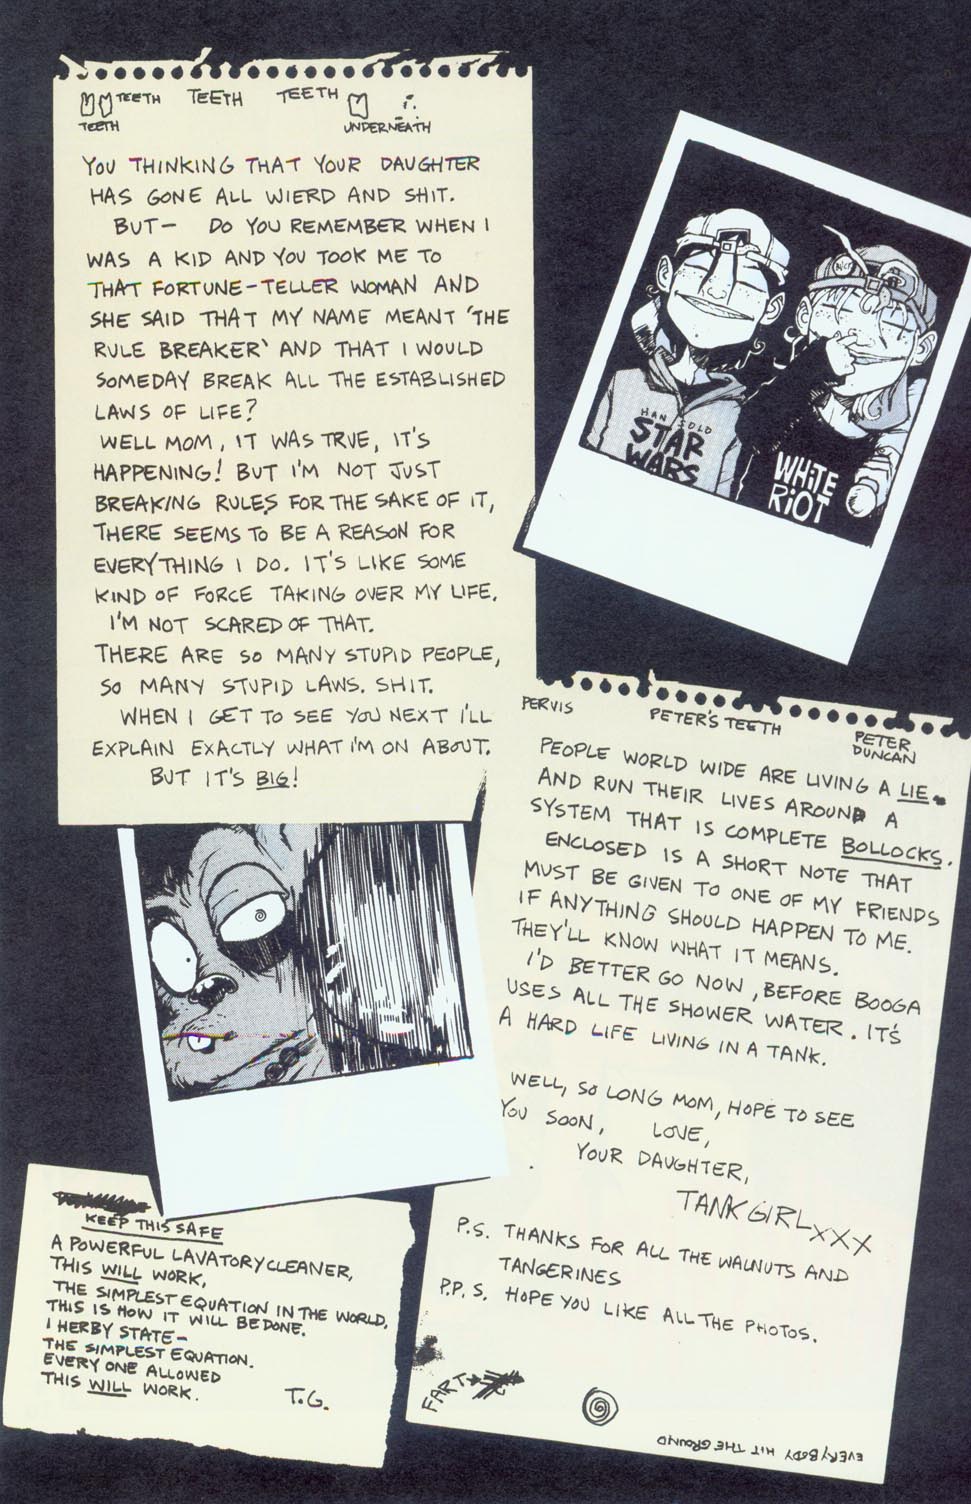 TEETH TEETH TEETH
TEETH
UNDERNEATH
YOU THINKING THAT YOUR DAUGHTER
HAS GONE ALL WIERD AND SHIT.
BUT— DO YOU REMEMBER WHEN I
WAS A KID AND YOU TOOK ME TO
THAT FORTUNE-TELLER WOMAN AND
SHE SAID THAT MY NAME MEANT 'THE
RULE BREAKER' AND THAT I WOULD
SOMEDAY BREAK ALL THE ESTABLISHED
LAWS OF LIFE?
WELL MOM, IT WAS TRUE, IT'S
HAPPENING! BUT I'M NOT JUST
BREAKING RULES FOR THE SAKE OF IT,
THERE SEEMS TO BE A REASON FOR
EVERYTHING I DO. IT'S LIKE SOME
KIND OF FORCE TAKING OVER MY LIFE.
I'M NOT SCARED OF THAT.
THERE ARE SO MANY STUPID PEOPLE,
SO MANY STUPID LAWS. SHIT.
WHEN I GET TO SEE YOU NEXT I'LL
EXPLAIN EXACTLY WHAT I'M ON ABOUT.
BUT IT'S BIG!
HAN SOLO
STAR
WARS
WHITE
RIOT
PERVIS
PETER'S TEETH
PETER
DUNCAN
PEOPLE WORLD WIDE ARE LIVING A LIE.
AND RUN THEIR LIVES AROUND A
SYSTEM THAT IS COMPLETE BOLLOCKS.
ENCLOSED IS A SHORT NOTE THAT
MUST BE GIVEN TO ONE OF MY FRIENDS
IF ANYTHING SHOULD HAPPEN TO ME.
THEY'LL KNOW WHAT IT MEANS.
I'D BETTER GO NOW, BEFORE BOOGA
USES ALL THE SHOWER WATER. IT'S
A HARD LIFE LIVING IN A TANK.
WELL, SO LONG MOM, HOPE TO SEE
YOU SOON, LOVE,
YOUR DAUGHTER,
TANK GIRL XXX
P.S. THANKS FOR ALL THE WALNUTS AND
TANGERINES
P.P.S. HOPE YOU LIKE ALL THE PHOTOS.
FART
EVERYBODY HIT THE GROUND
KEEP THIS SAFE
A POWERFUL LAVATORY CLEANER,
THIS WILL WORK,
THE SIMPLEST EQUATION IN THE WORLD,
THIS IS HOW IT WILL BE DONE.
I HERBY STATE—
THE SIMPLEST EQUATION.
EVERY ONE ALLOWED
THIS WILL WORK.
T.G.